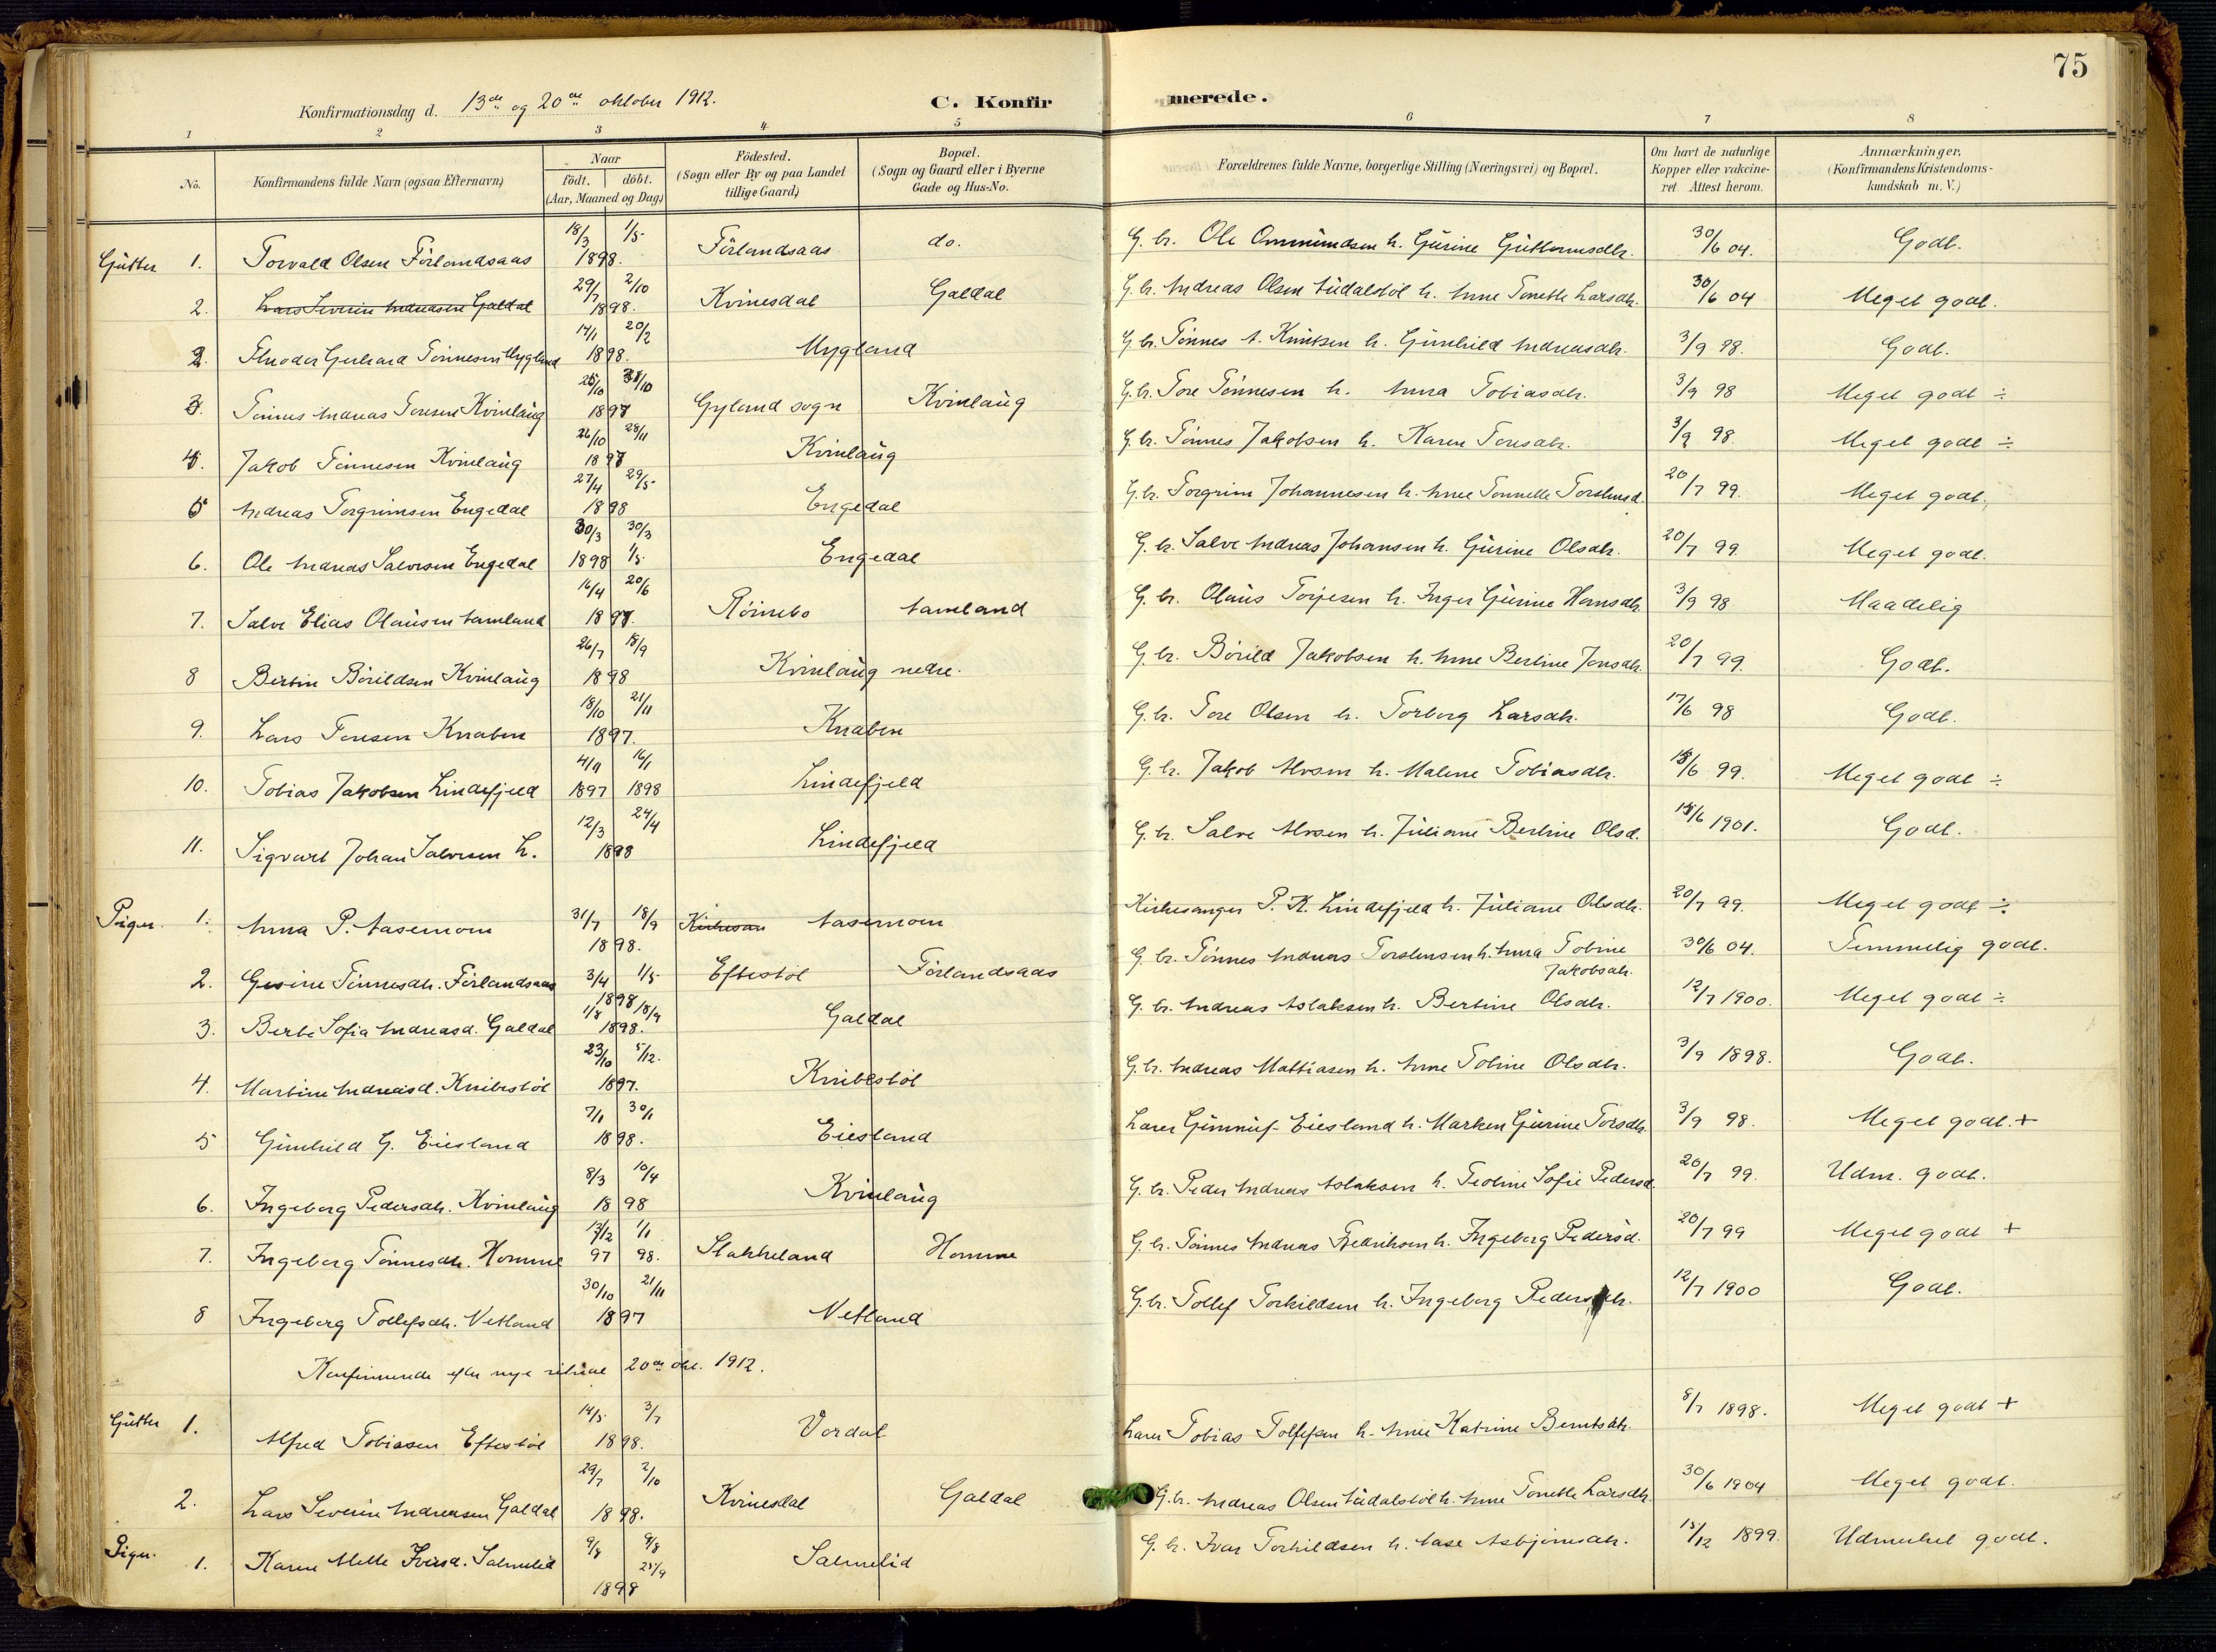 75
Konfirmationsdag d. 13de og 20de oktober 1912.
C. Konfirmerede.
1 2 3 4 5 6 7 8
No.
Konfirmandens fulde Navn (ogsaa Efternavn)
Naar
födt. döbt.
(Aar, Maaned og Dag)
Födested.
(Sogn eller By og paa Landet
tillige Gaard)
Bopæl.
(Sogn og Gaard eller i Byerne
Gade og Hus-No.
Forældrenes fulde Navne, borgerlige Stilling (Næringsvei) og Bopæl.
Om havt de naturlige
Kopper eller vakcine-
ret. Attest herom.
Anmærkninger.
(Konfirmandens Kristendoms-
kundskab m. V.)
Gutter 1. Torvald Olsen Förlandsaas 18/3 1/5 1898. Förlandsaas do. G. br. Ole Ommundsen h. Gurine Guttormsdtr. 30/6 04. Godt.
2. Lars Severin Andreasen Galdal 29/7 2/10 1898. Kvinesdal Galdal G. br. Andreas Olsen h. Anne Tonette Larsdtr. 30/6 04 Meget godt.
2. Gerhard Tönnesen Mygland 14/1 20/2 1898. Mygland G. br. Tönnes A. Knutsen h. Gunhild Andreasdtr. 3/9 98. Godt.
3. Tönnes Andreas Toresen Kvinlaug 25/10 31/10 1897 Gyland sogn Kvinlaug G. br. Tore Tönnesen h. Anna Tobiasdtr. 3/9 98 Meget godt ÷
4. Jakob Tönnesen Kvinlaug 26/10 28/11 1897 Kvinlaug G. br. Tönnes Jakobsen h. Karen Toresdtr. 3/9 98. Meget godt ÷
5 Andreas Torgrimsen Engedal 27/4 29/5 1898 Engedal G. br. Torgrim Johannesen h. Anne Tonnette Torstensd. 20/7 99. Meget godt.
6. Ole Andreas Salvesen Engedal 30/3 30/3 1898 1/5 Engedal G. br. Salve Andreas Johansen h. Gurine Olsdtr. 20/7 99. Meget godt.
7. Salve Elias Olausen Aamland 16/4 20/6 1897. Rörnebo Aamland G. br. Olaus Torjesen h. Inger Gurine Hansdtr. 3/9 98 Maadelig
8 Bertin Börildsen Kvinlaug 26/7 18/9 1898 Kvinlaug nedre. G. br. Börild Jakobsen h. Anne Bertine Jonsdtr. 20/7 99. Godt.
9. Lars Toresen Knaben 18/10 21/11 1897. Knaben G. br. Tore Olsen h. Torborg Larsdtr. 17/6 98 Godt.
10. Tobias Jakobsen Lindefjeld 4/11 16/1 1897 1898 Lindefjeld G. br. Jakob Alvsen h. Malene Tobiasdtr. 18/6 99. Meget godt ÷
11. Sigvart Johan Salvesen L. 12/3 24/4 1898 Lindefjeld G. br. Salve Alvsen h. Juliane Bertine Olsd. 15/6 1901. Godt.
Piger. 1. Anna P. Aasemoen 31/7 18/9 1898. Aasemoen Kirkesanger P. K. Lindefjeld h. Juliane Olsdtr. 20/7 99. Meget godt ÷
2. Gesine Tönnesdtr. Förlandsaas 3/4 1/5 1898 Eftestöl Förlandsaas G. br. Tönnes Andreas Torstensen h. Anna Tobine Jakobsdtr. 30/6 04. Temmelig godt.
3. Berte Sofia Andreasd. Galdal 1/8 18/9 1898. Galdal G. br. Andreas Aslaksen h. Bertine Olsdtr. 12/7 1900. Meget godt ÷
4. Martine Andreasd. Knibestöl 23/10 5/12. 1897. Knibestöl G. br. Andreas Mattiasen h. Anne Tobine Olsdtr. 3/9 1898. Godt.
5 Gunhild G. Eiesland 7/1 30/1 1898. Eiesland Lærer Gunnuf Eiesland h. Marken Gurine Torsdtr. 3/9 98. Meget godt. +
6. Ingeborg Pedersdtr. Kvinlaug 8/3 10/4 1898 Kvinlaug G. br. Peder Andreas Aslaksen h. Teoline Sofie Pedersd. 20/7 99. Udm. godt.
7. Ingeborg Tönnesdtr. Homme 13/12 1/1 97 98. Stakkeland Homme G. br. Tönnes Andreas Fredriksen h. Ingeborg Pedersd. 20/7 99 Meget godt +
8 Ingeborg Tollefsdtr. Netland 30/10 21/11 1897 Netland G. br. Tollef Torkildsen h. Ingeborg Pedersdtr. 12/7 1900 Godt.
Konfirmerede efter nye ritual 20de okt. 1912.
Gutter 1. Alfred Tobiasen Eftestöl 14/5 3/7 1898. Vordal Lærer Tobias Tollefsen h. Anne Katrine Berntsdtr. 8/7 1898. Meget godt +
2. Lars Severin Andreasen Galdal 29/7 2/10 1898. Kvinesdal Galdal G. br. Andreas Olsen h. Anne Tonette Larsdtr. 30/6 1904 Meget godt.
Piger. 1. Karen Mette Iversd. Salmelid 9/8 9/8 25/9 1898 Salmelid G. br. Ivar Torkildsen h. Aase Asbjörnsdtr. 15/12 1899. Udmerket godt.